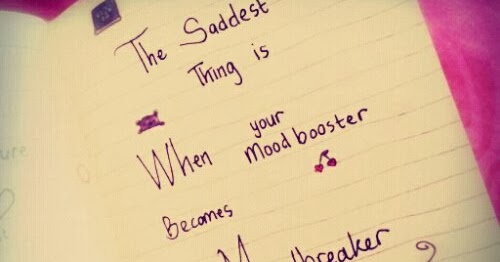 The Saddest
Thing is
When your
Moodbooster
Becomes
Moodbreaker